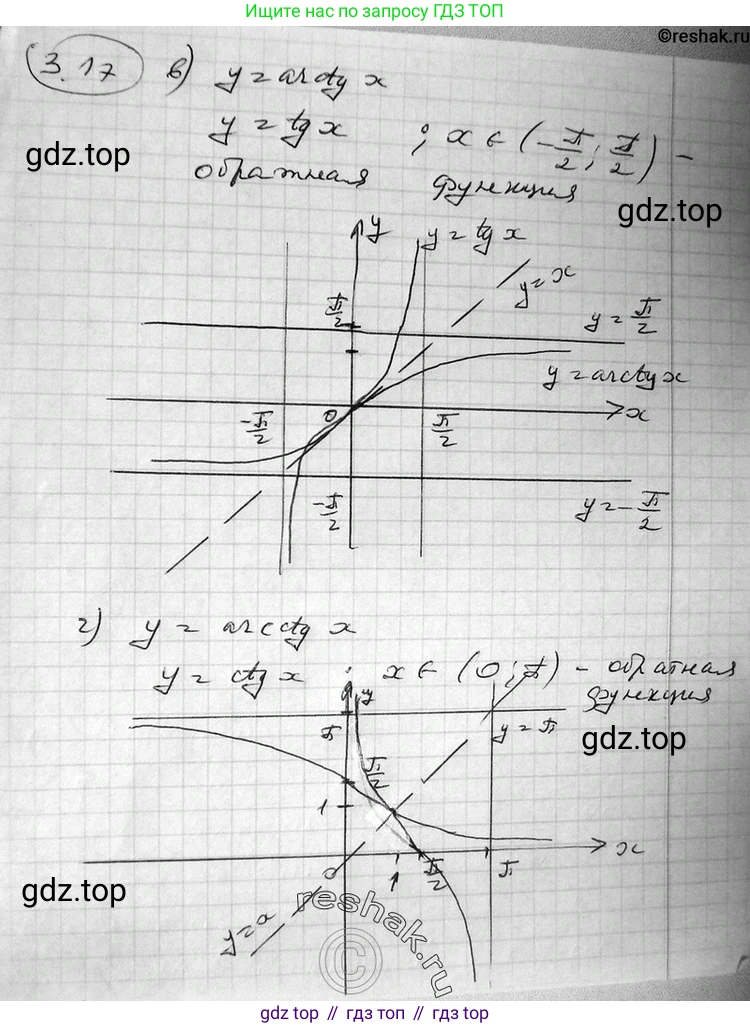 Ищите нас по запросу ГДЗ ТОП
©reshak.ru
3.17 в) y = arctg x
y = tg x ; x ∈ (-π/2; π/2) -
обратная функция
gdz.top
gdz.top
y
y = tg x
y = x
π/2
y = π/2
y = arctg x
-π/2
0
π/2
x
-π/2
y = -π/2
г) y = arcctg x
y = ctg x ; x ∈ (0; π) - обратная
функция
y
π
y = π
gdz.top
π/2
1
x
0
1
π/2
π
gdz.top
reshak.ru
©
gdz.top // гдз топ // gdz.top